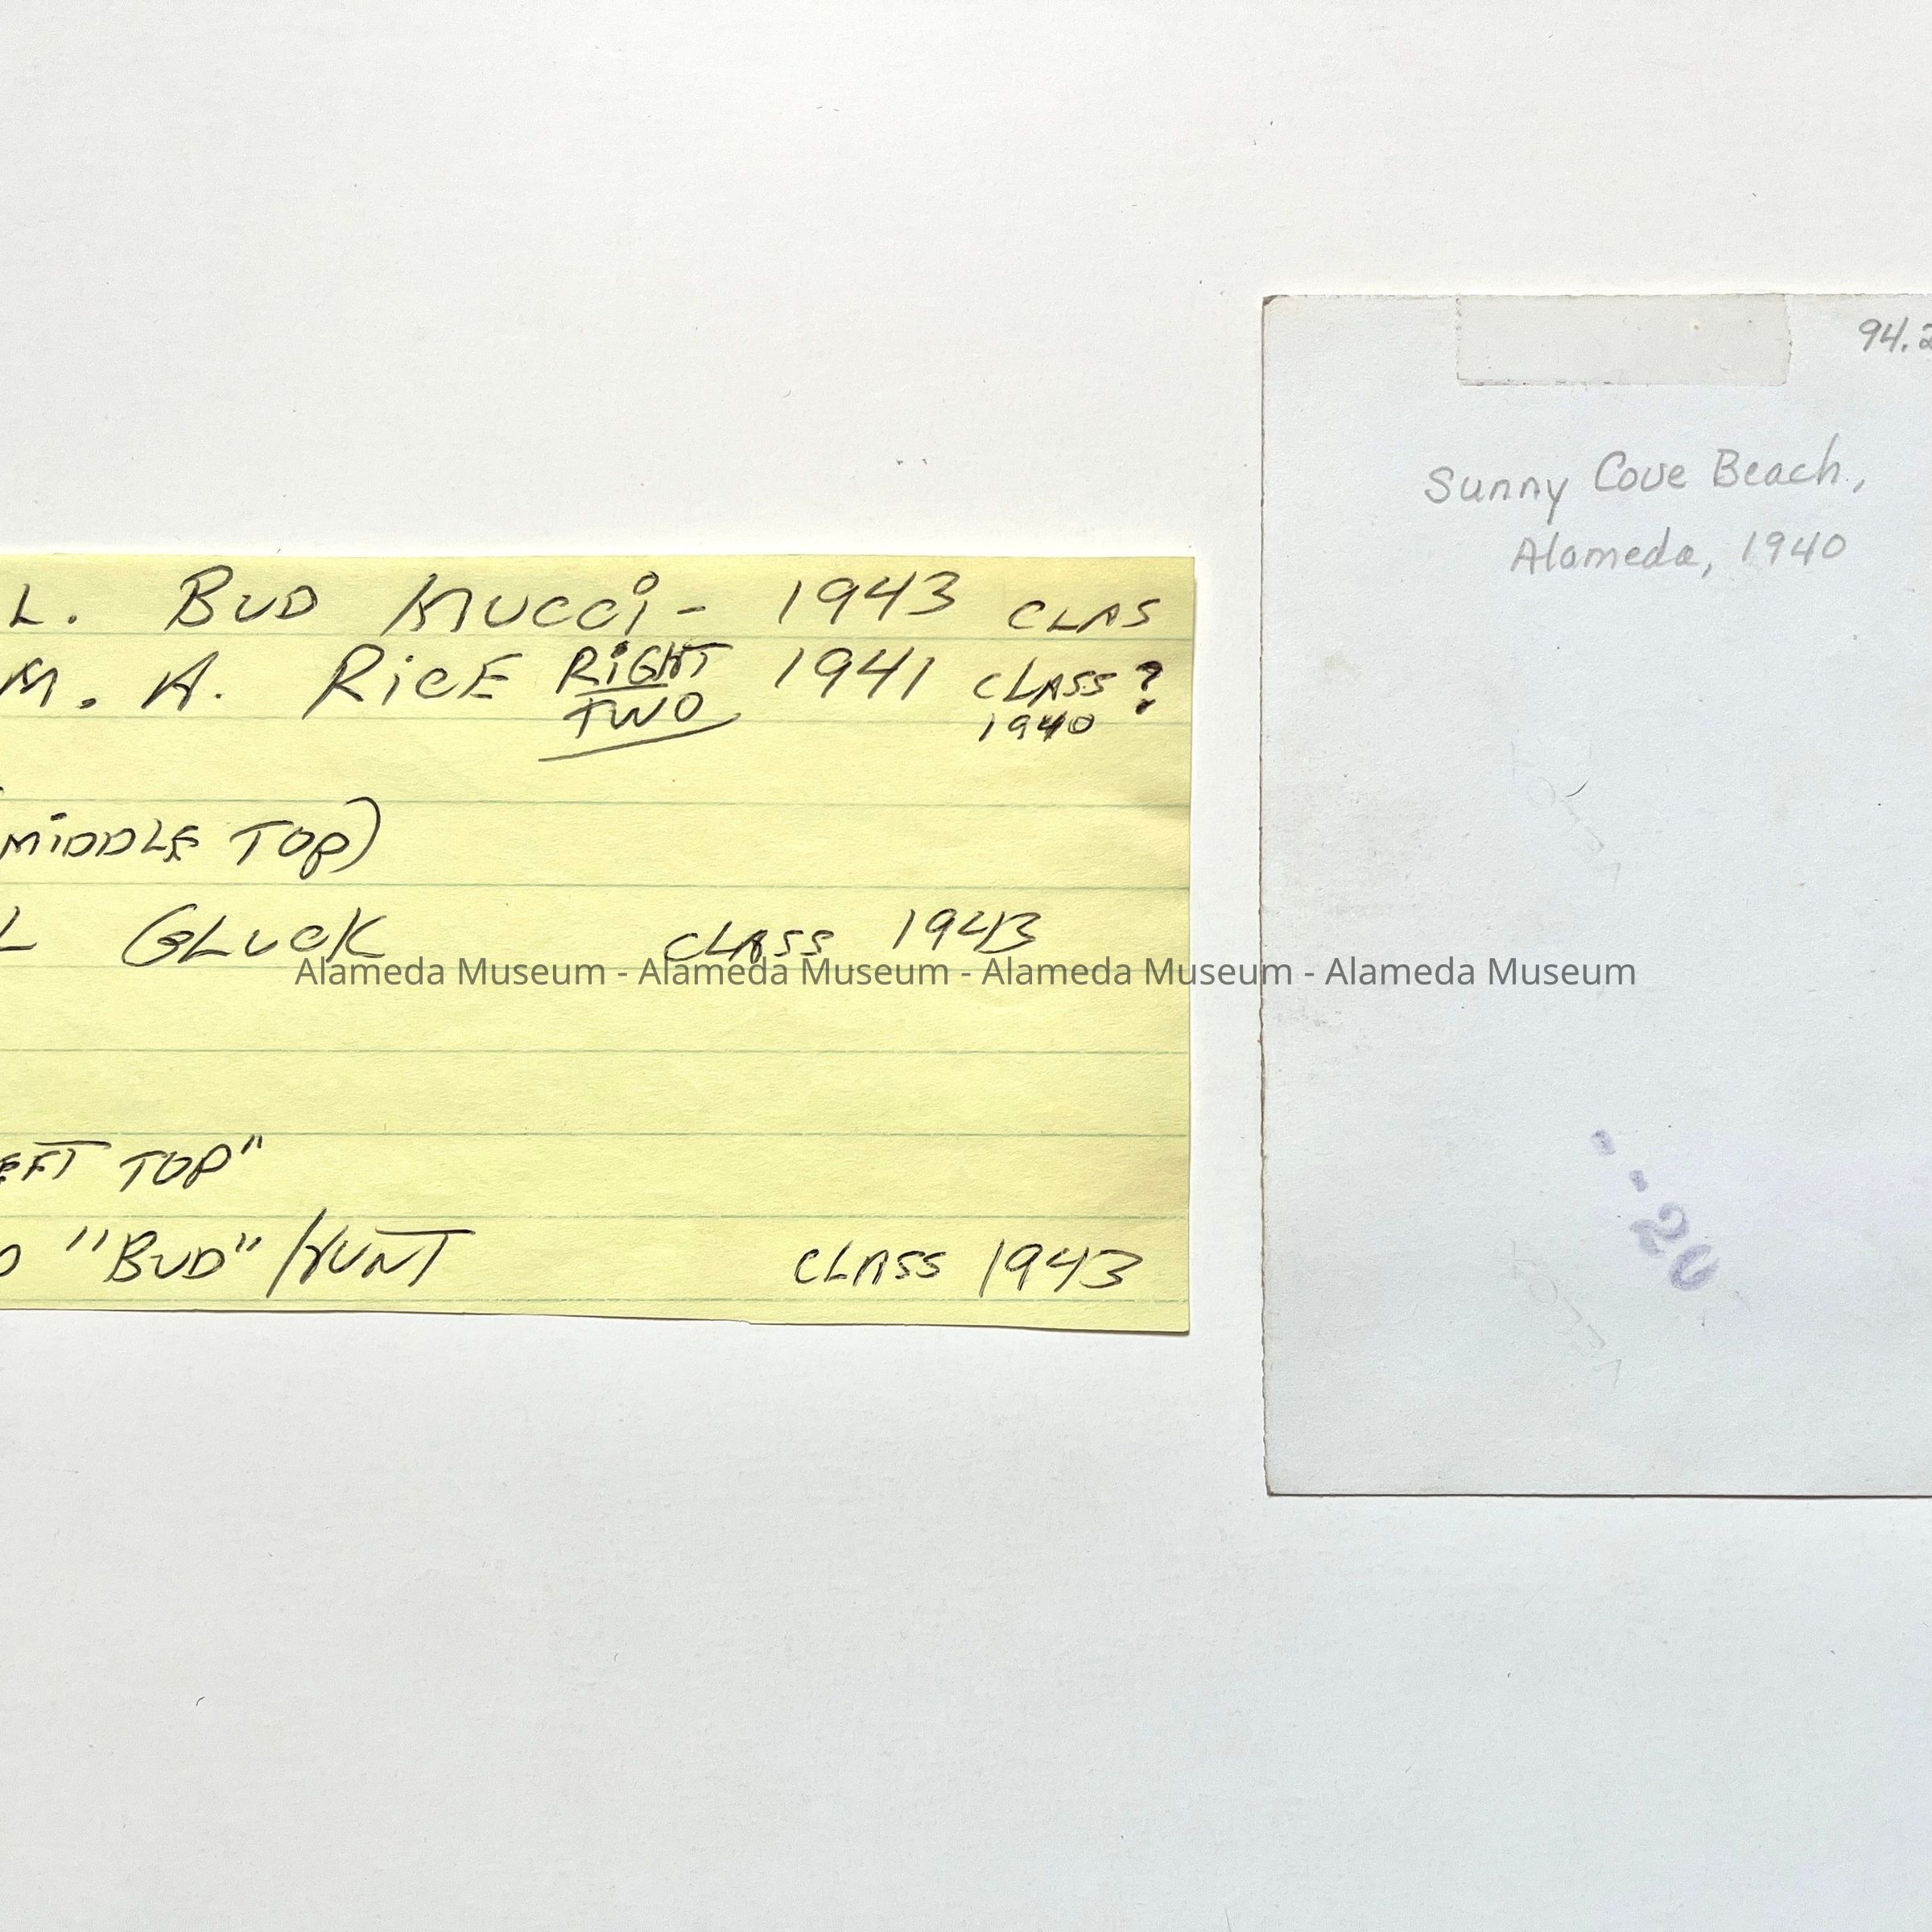 L. BUD MUCCI - 1943 CLAS
M. A. RICE RIGHT TWO 1941 CLASS ?
1940
MIDDLE TOP)
L GLUCK CLASS 1943
EFT TOP"
D "BUD" HUNT CLASS 1943
94.2
Sunny Cove Beach,
Alameda, 1940
20
Alameda Museum - Alameda Museum - Alameda Museum - Alameda Museum